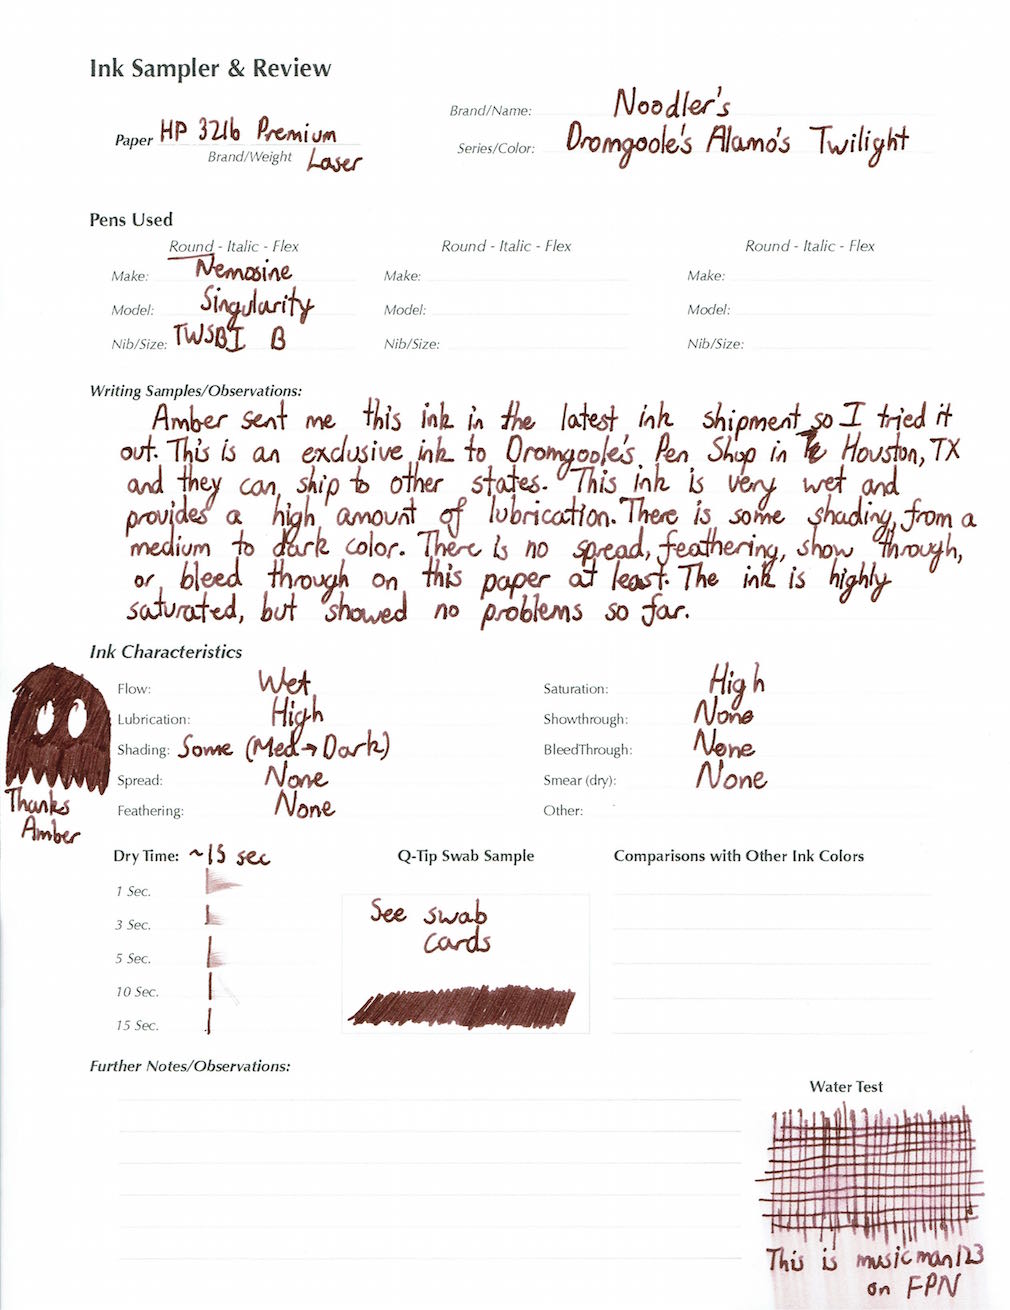 Ink Sampler & Review
Brand/Name: Noodler's
Paper HP 32lb Premium
Brand/Weight Laser
Series/Color: Dromgoole's Alamo's Twilight
Pens Used
Round - Italic - Flex
Make: Nemosine
Model: Singularity
Nib/Size: TWSBI B
Round - Italic - Flex
Make:
Model:
Nib/Size:
Round - Italic - Flex
Make:
Model:
Nib/Size:
Writing Samples/Observations:
Amber sent me this ink in the latest ink shipment so I tried it
out. This is an exclusive ink to Dromgoole's Pen Shop in the Houston, TX
and they can ship to other states. This ink is very wet and
provides a high amount of lubrication. There is some shading, from a
medium to dark color. There is no spread, feathering, show through,
or bleed through on this paper at least. The ink is highly
saturated, but showed no problems so far.
Ink Characteristics
Flow: Wet
Lubrication: High
Shading: Some (Med→Dark)
Spread: None
Feathering: None
Saturation: High
Showthrough: None
BleedThrough: None
Smear (dry): None
Other:
Thanks
Amber
Dry Time: ~15 sec
1 Sec.
3 Sec.
5 Sec.
10 Sec.
15 Sec.
Q-Tip Swab Sample
See swab
cards
Comparisons with Other Ink Colors
Further Notes/Observations:
Water Test
This is musicman123
on FPN